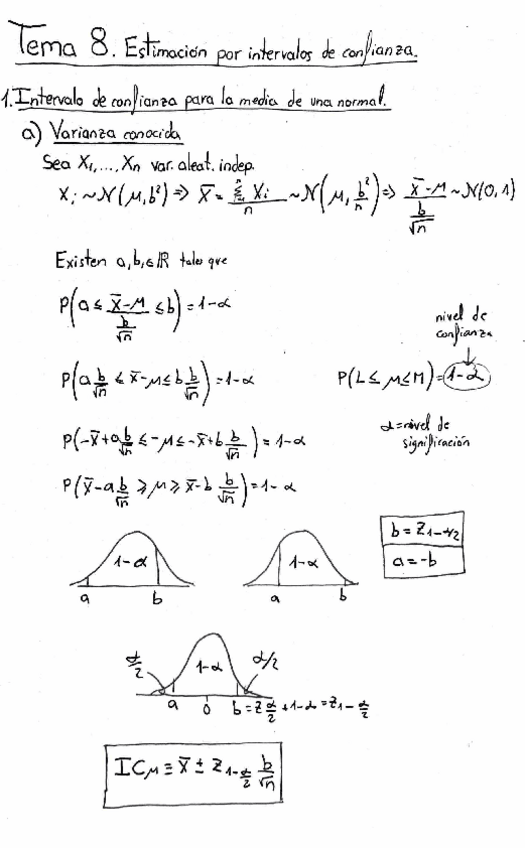 Tema 8. Estimación por intervalos de confianza.
1. Intervalo de confianza para la media de una normal.
a) Varianza conocida
Sea X1,...,Xn var. aleat. indep.
Xi ~ N(μ, b²) => X̄ = Σ(i=1 to n) Xi / n ~ N(μ, b²/n) => (X̄-μ)/(b/√n) ~ N(0,1)
Existen a, b, ∈ ℝ tales que
P(a ≤ (X̄-μ)/(b/√n) ≤ b) = 1-α
nivel de
confianza
P(a b/√n ≤ X̄-μ ≤ b b/√n) = 1-α
P(L ≤ μ ≤ M) = 1-α
P(-X̄+a b/√n ≤ -μ ≤ -X̄+b b/√n) = 1-α
α = nivel de
significación
P(X̄-a b/√n ≥ μ ≥ X̄-b b/√n) = 1-α
b = Z1-α/2
a = -b
1-α
a b
1-α
a b
α/2 1-α α/2
a 0 b = Z α/2 + 1-α = Z1-α/2
ICμ ≡ X̄ ± Z1-α/2 b/√n